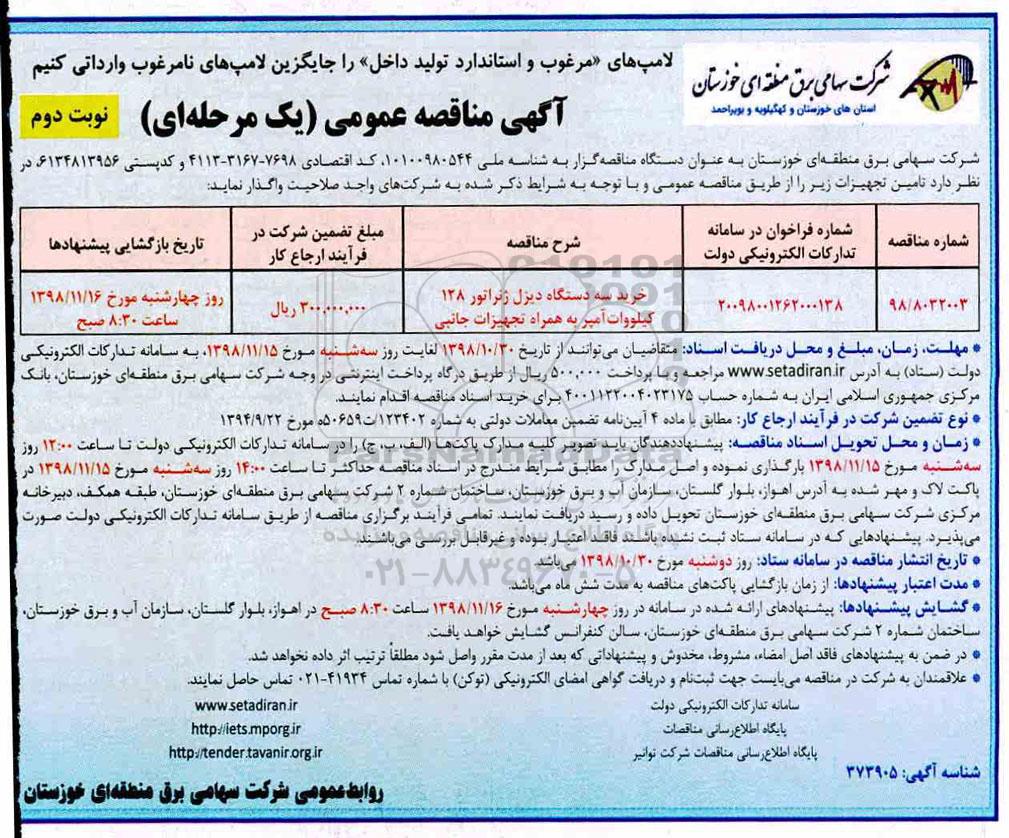 شرکت سهامی برق منطقه‌ای خوزستان
استان های خوزستان و کهگیلویه و بویراحمد
لامپ‌های «مرغوب و استاندارد تولید داخل» را جایگزین لامپ‌های نامرغوب وارداتی کنیم
آگهی مناقصه عمومی (یک مرحله‌ای)
نوبت دوم
شرکت سهامی برق منطقه‌ای خوزستان به عنوان دستگاه مناقصه‌گزار به شناسه ملی ۱۰۱۰۰۹۸۰۵۴۴، کد اقتصادی ۷۶۹۸-۳۱۶۷-۴۱۱۳ و کدپستی ۶۱۳۴۸۱۳۹۵۶، در
نظر دارد تامین تجهیزات زیر را از طریق مناقصه عمومی و با توجه به شرایط ذکر شده به شرکت‌های واجد صلاحیت واگذار نماید:
شماره مناقصه
شماره فراخوان در سامانه
تدارکات الکترونیکی دولت
شرح مناقصه
مبلغ تضمین شرکت در
فرآیند ارجاع کار
تاریخ بازگشایی پیشنهادها
۹۸/۸۰۳۲۰۰۳
۲۰۰۹۸۰۰۱۲۶۲۰۰۰۱۳۸
خرید سه دستگاه دیزل ژنراتور ۱۲۸
کیلووات‌آمپر به همراه تجهیزات جانبی
۳۰۰,۰۰۰,۰۰۰ ریال
روز چهارشنبه مورخ ۱۳۹۸/۱۱/۱۶
ساعت ۸:۳۰ صبح
* مهلت، زمان، مبلغ و محل دریافت اسناد: متقاضیان می‌توانند از تاریخ ۱۳۹۸/۱۰/۳۰ لغایت روز سه‌شنبه مورخ ۱۳۹۸/۱۱/۱۵، به سامانه تدارکات الکترونیکی
دولت (ستاد) به آدرس www.setadiran.ir مراجعه و با پرداخت ۵۰۰,۰۰۰ ریال از طریق درگاه پرداخت اینترنتی در وجه شرکت سهامی برق منطقه‌ای خوزستان، بانک
مرکزی جمهوری اسلامی ایران به شماره حساب ۴۰۰۱۱۲۲۰۰۴۰۲۳۱۷۵ برای خرید اسناد مناقصه اقدام نمایند.
* نوع تضمین شرکت در فرآیند ارجاع کار: مطابق با ماده ۴ آیین‌نامه تضمین معاملات دولتی به شماره ۱۲۳۴۰۲/ت۵۰۶۵۹ه مورخ ۱۳۹۴/۹/۲۲
* زمان و محل تحویل اسناد مناقصه: پیشنهاددهندگان باید تصویر کلیه مدارک پاکت‌ها (الف، ب، ج) را در سامانه تدارکات الکترونیکی دولت تا ساعت ۱۲:۰۰ روز
سه‌شنبه مورخ ۱۳۹۸/۱۱/۱۵ بارگذاری نموده و اصل مدارک را مطابق شرایط مندرج در اسناد مناقصه حداکثر تا ساعت ۱۴:۰۰ روز سه‌شنبه مورخ ۱۳۹۸/۱۱/۱۵ در
پاکت لاک و مهر شده به آدرس اهواز، بلوار گلستان، سازمان آب و برق خوزستان، ساختمان شماره ۲ شرکت سهامی برق منطقه‌ای خوزستان، طبقه همکف، دبیرخانه
مرکزی شرکت سهامی برق منطقه‌ای خوزستان تحویل داده و رسید دریافت نمایند. تمامی فرآیند برگزاری مناقصه از طریق سامانه تدارکات الکترونیکی دولت صورت
می‌پذیرد. پیشنهادهایی که در سامانه ستاد ثبت نشده باشد، فاقد اعتبار بوده و غیرقابل بررسی می‌باشند.
* تاریخ انتشار مناقصه در سامانه ستاد: روز دوشنبه مورخ ۱۳۹۸/۱۰/۳۰ می‌باشد.
* مدت اعتبار پیشنهادها: از زمان بازگشایی پاکت‌های مناقصه به مدت شش ماه می‌باشد.
* گشایش پیشنهادها: پیشنهادهای ارائه شده در سامانه در روز چهارشنبه مورخ ۱۳۹۸/۱۱/۱۶ ساعت ۸:۳۰ صبح در اهواز، بلوار گلستان، سازمان آب و برق خوزستان،
ساختمان شماره ۲ شرکت سهامی برق منطقه‌ای خوزستان، سالن کنفرانس گشایش خواهد یافت.
* در ضمن به پیشنهادهای فاقد اصل امضاء، مشروط، مخدوش و پیشنهاداتی که بعد از مدت مقرر واصل شود مطلقاً ترتیب اثر داده نخواهد شد.
* علاقمندان به شرکت در مناقصه می‌بایست جهت ثبت‌نام و دریافت گواهی امضای الکترونیکی (توکن) با شماره تماس ۴۱۹۳۴-۰۲۱ تماس حاصل نمایند.
سامانه تدارکات الکترونیکی دولت www.setadiran.ir
پایگاه اطلاع‌رسانی مناقصات http://iets.mporg.ir
پایگاه اطلاع‌رسانی مناقصات شرکت توانیر http://tender.tavanir.org.ir
شناسه آگهی: ۳۷۳۹۰۵
روابط‌عمومی شرکت سهامی برق منطقه‌ای خوزستان
ParsNamadData